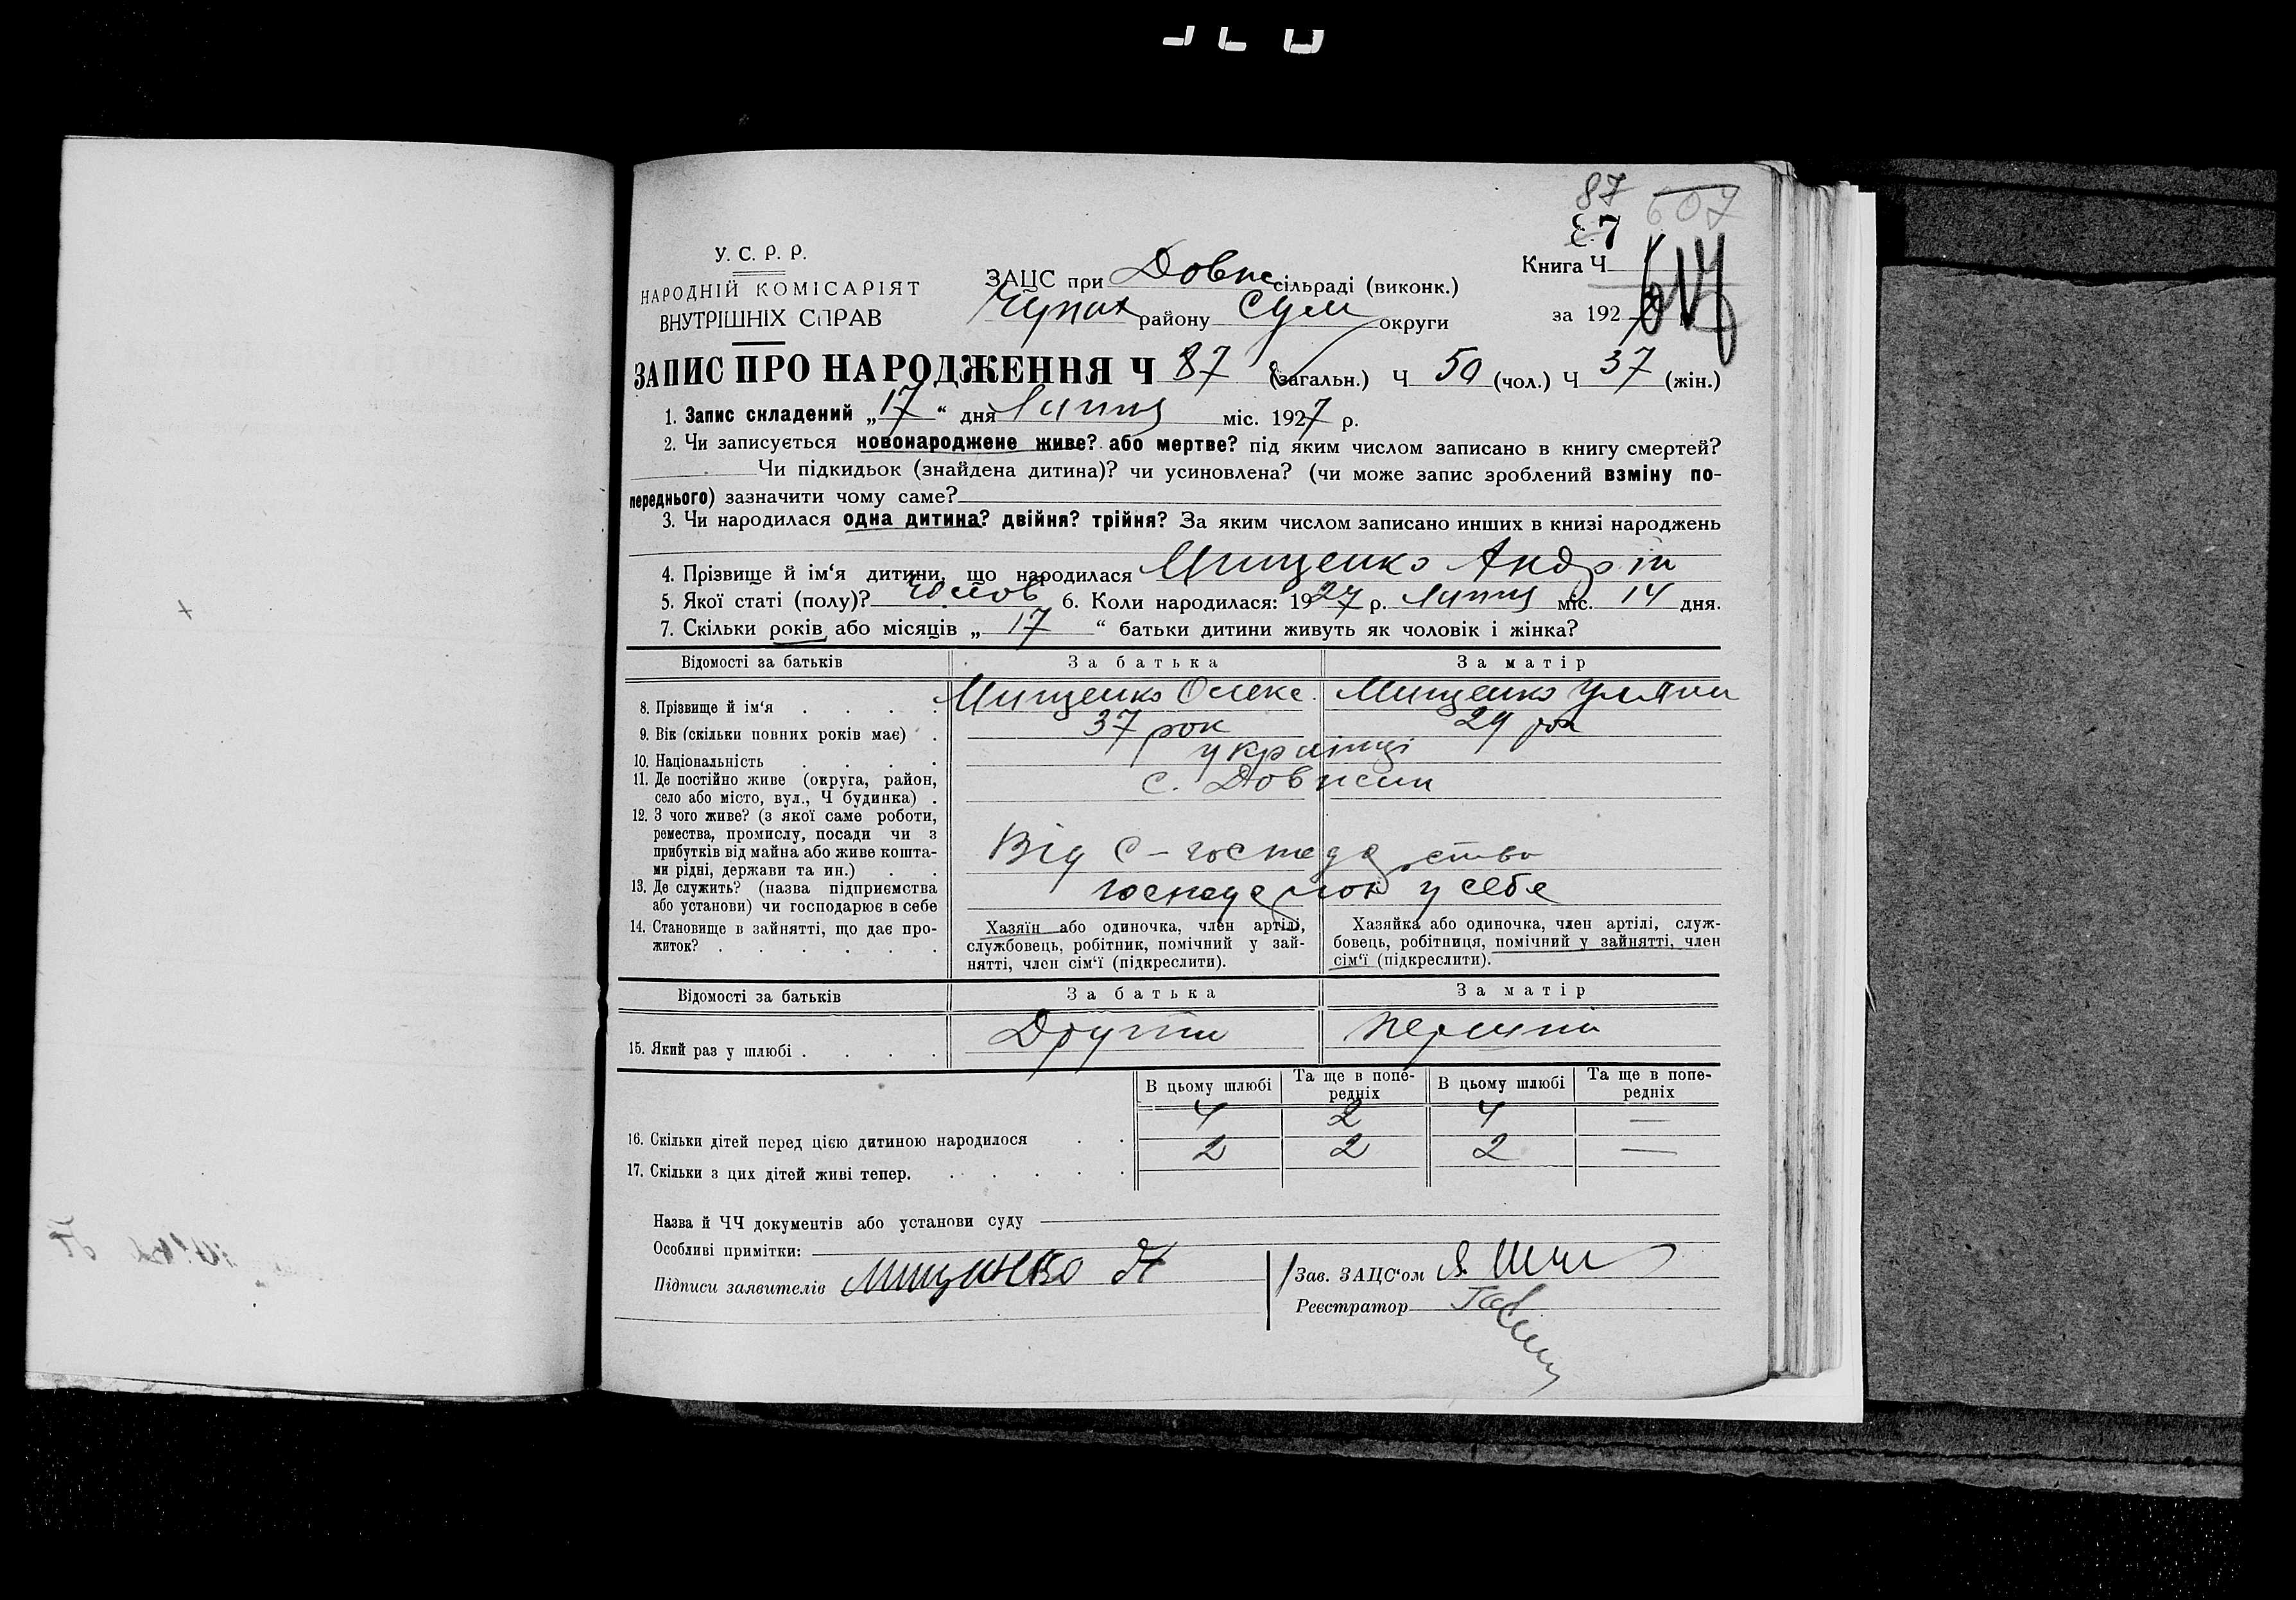 87 607
87
617
У. С. Р. Р.
НАРОДНІЙ КОМІСАРІЯТ
ВНУТРІШНІХ СПРАВ
ЗАЦС при Довже сільраді (виконк.)
Чупах району Сум округи
Книга Ч
за 1927
ЗАПИС ПРО НАРОДЖЕННЯ Ч 87 (загальн.) Ч 50 (чол.) Ч 37 (жін.)
1. Запис складений „17“ дня липня міс. 1927 р.
2. Чи записується новонароджене живе? або мертве? під яким числом записано в книгу смертей?
Чи підкидьок (знайдена дитина)? чи усиновлена? (чи може запис зроблений взміну по-
переднього) зазначити чому саме?
3. Чи народилася одна дитина? двійня? трійня? За яким числом записано инших в книзі народжень
4. Прізвище й ім‘я дитини, що народилася Мищенко Андрій
5. Якої статі (полу)? Чолов 6. Коли народилася: 1927 р. липня міс. 14 дня.
7. Скільки років або місяців „17“ батьки дитини живуть як чоловік і жінка?
Відомості за батьків За батька За матір
8. Прізвище й ім‘я . . . . Мищенко Олекс. Мищенко Уляни
9. Вік (скільки повних років має) . 37 рок 29 рок
10. Національність . . . . українці
11. Де постійно живе (округа, район,
село або місто, вул., Ч будинка) . с. Довжик
12. З чого живе? (з якої саме роботи,
ремества, промислу, посади чи з
прибутків від майна або живе кошта-
ми рідні, держави та ин.) . . Від с-господарства
13. Де служить? (назва підприємства
або установи) чи господарює в себе господарюю у себе
14. Становище в зайнятті, що дає про-
житок? . . . . . .
Хазяїн або одиночка, член артілі,
службовець, робітник, помічний у зай-
нятті, член сім‘ї (підкреслити).
Хазяйка або одиночка, член артілі, служ-
бовець, робітниця, помічний у зайнятті, член
сім‘ї (підкреслити).
Відомості за батьків За батька За матір
15. Який раз у шлюбі . . . . Другий Перший
В цьому шлюбі Та ще в попе-
редніх В цьому шлюбі Та ще в попе-
редніх
16. Скільки дітей перед цією дитиною народилося . . 4 2 4 —
17. Скільки з цих дітей живі тепер. . . . . . 2 2 2 —
Назва й ЧЧ документів або установи суду
Особливі примітки:
Підписи заявителів Мищенко
Зав. ЗАЦС‘ом
Реєстратор